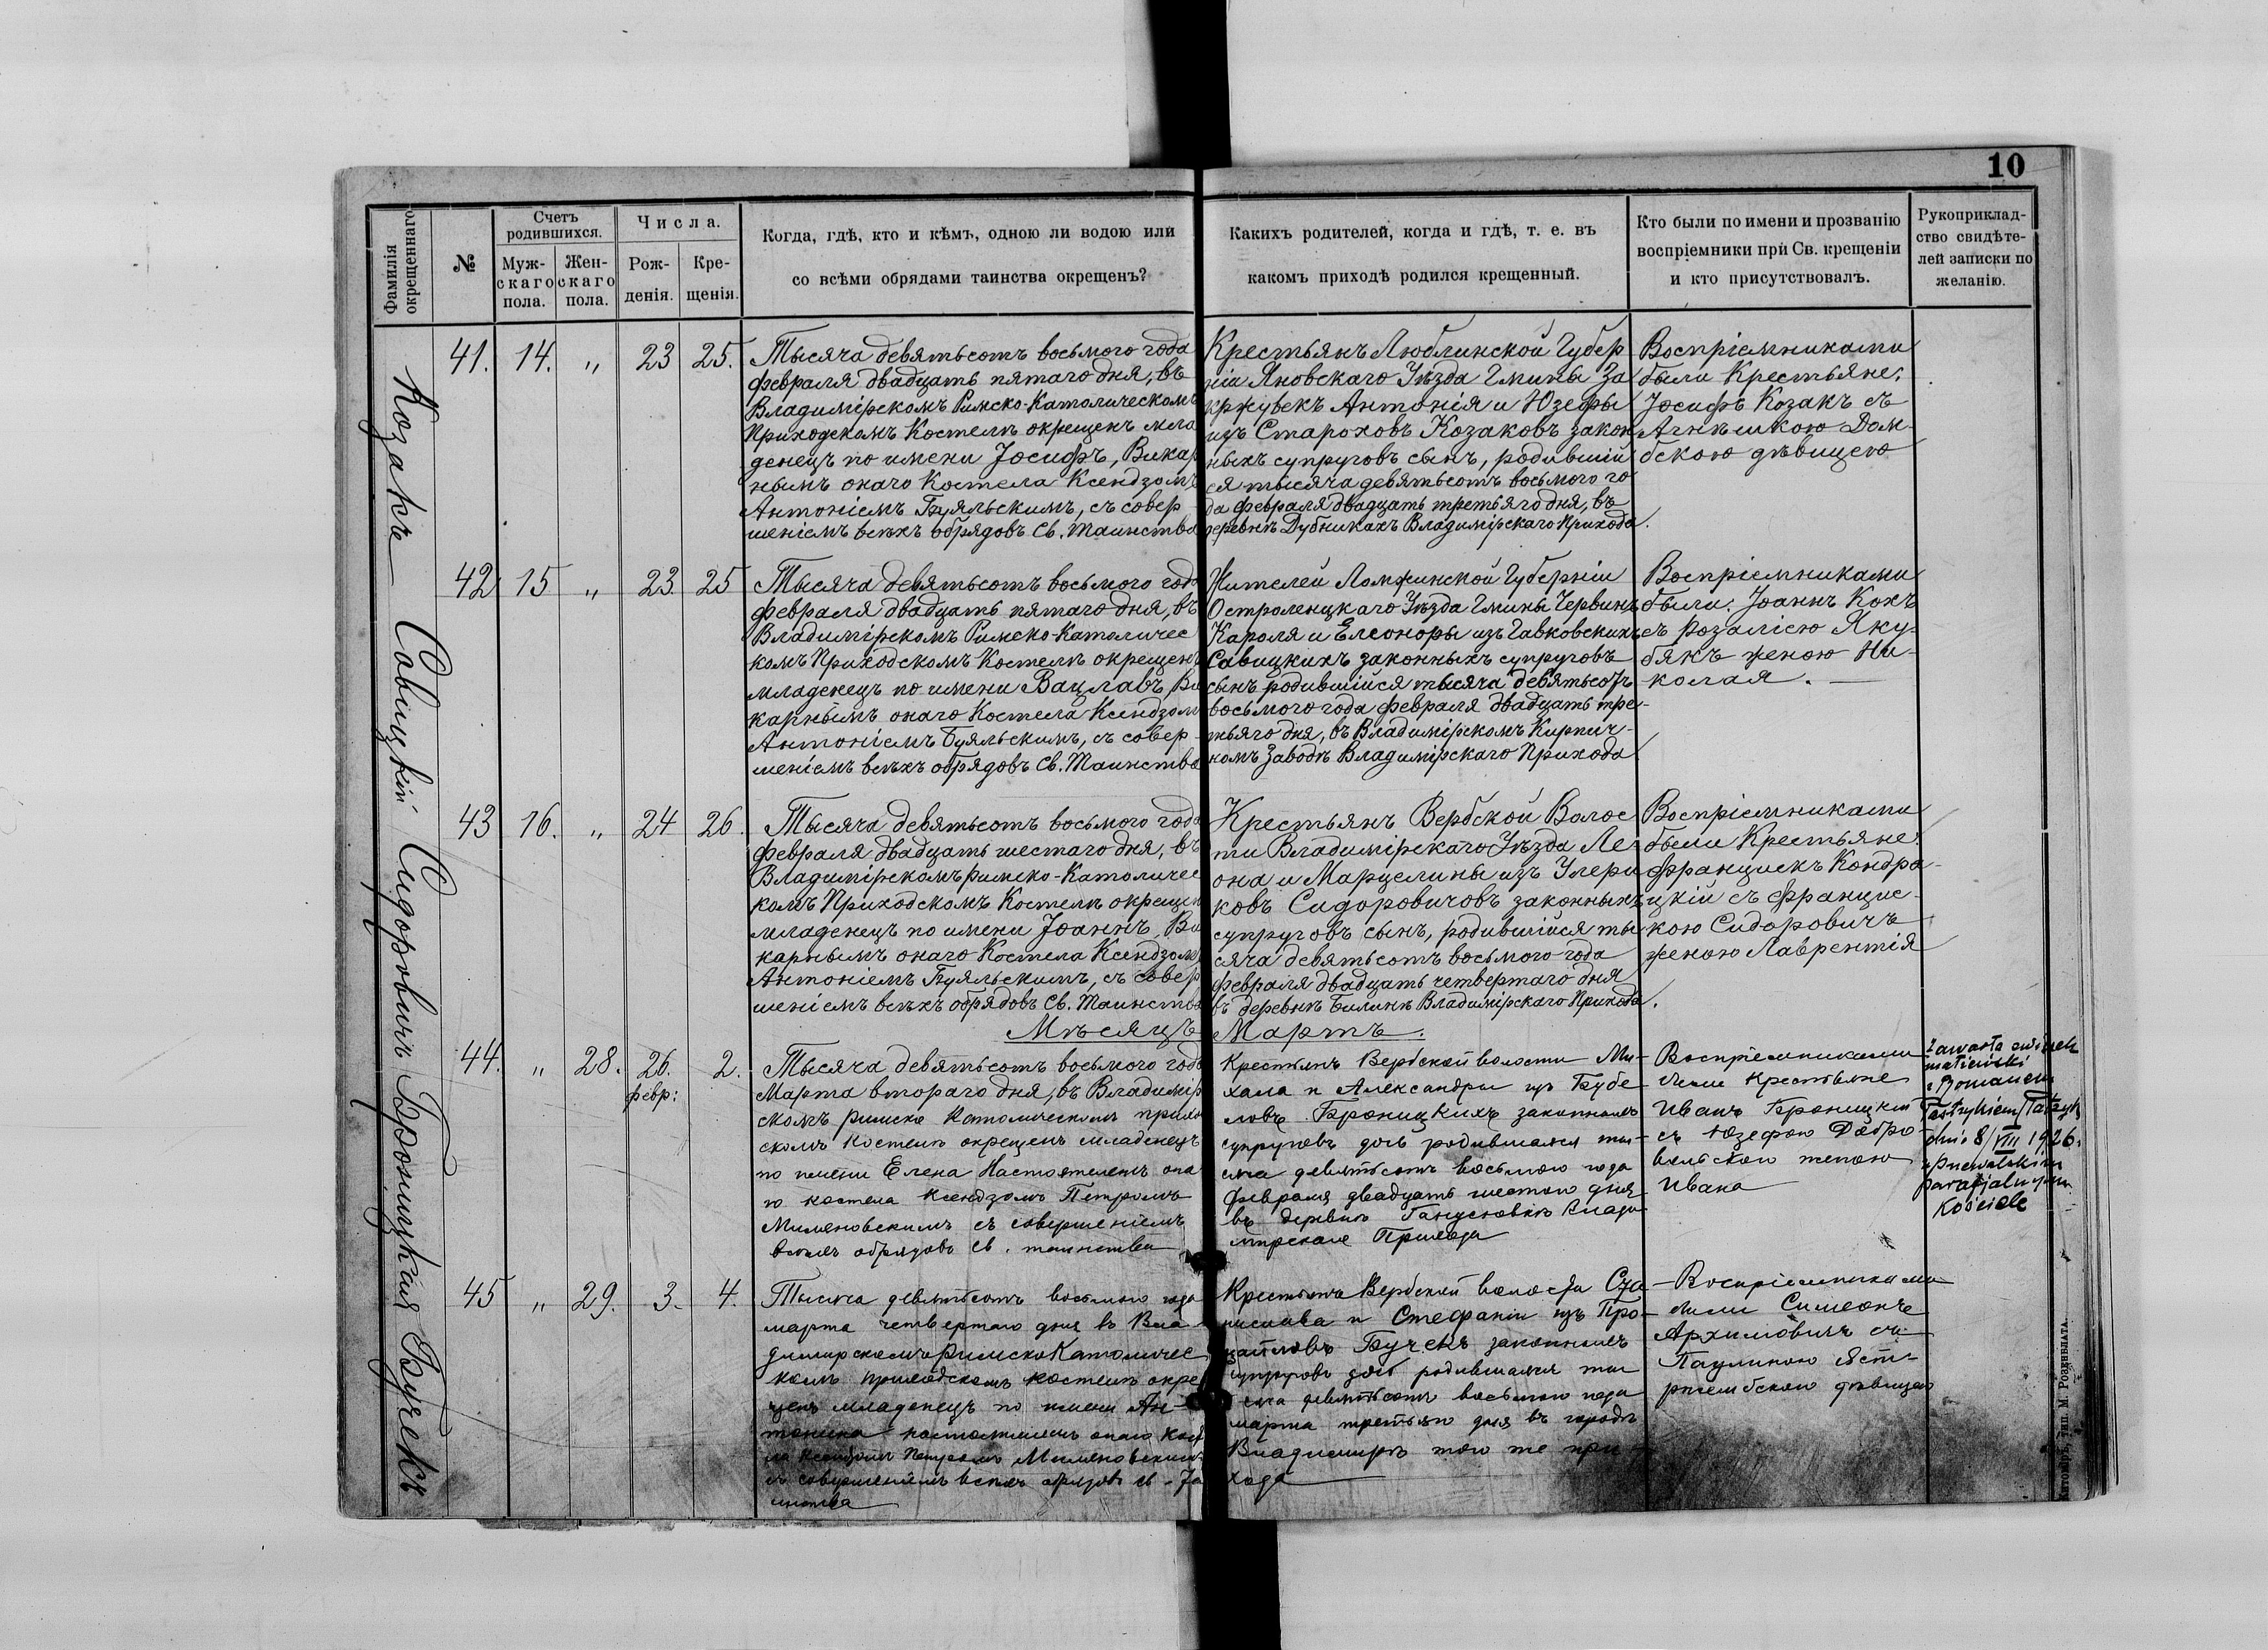 10
Фамилія окрещеннаго
№
Счетъ родившихся.
Муж-
скаго
пола.
Жен-
скаго
пола.
Числа.
Рож-
денія.
Кре-
щенія.
Когда, гдѣ, кто и кѣмъ, одною ли водою или
со всѣми обрядами таинства окрещенъ?
Какихъ родителей, когда и гдѣ, т. е. въ
какомъ приходѣ родился крещенный.
Кто были по имени и прозванію
воспріемники при Св. крещеніи
и кто присутствовалъ.
Рукоприклад-
ство свидѣте-
лей записки по
желанію.
Козакъ
41. 14. „ 23 25.
Тысяча девятьсотъ восьмого года
февраля двадцать пятаго дня, въ
Владимірскомъ Римско-Католическомъ
Приходскомъ Костелѣ окрещенъ мла
денецъ по имени Іосифъ, Викар
нымъ онаго Костела Ксендзомъ
Антоніемъ Буяльскимъ, съ совер
шеніемъ всѣхъ обрядовъ Св. Таинства
Крестьянъ Люблинской Губер
ніи Яновскаго Уѣзда Гмины За
кржувекъ Антонія и Юзефы
изъ Староховъ Козаковъ закон
ныхъ супруговъ сынъ, родившій
ся тысяча девятьсотъ восьмого го
да февраля двадцать третьяго дня, въ
деревнѣ Дубникахъ Владимірскаго Прихода.
Воспріемниками
были Крестьяне:
Іосифъ Козакъ съ
Агнѣшкою Дом-
бскою дѣвицею
Савицкій
42 15 „ 23. 25
Тысяча девятьсотъ восьмого года
февраля двадцать пятаго дня, въ
Владимірскомъ Римско-Католичес
комъ Приходскомъ Костелѣ окрещенъ
младенецъ по имени Вацлавъ, Ви
карнымъ онаго Костела Ксендзомъ
Антоніемъ Буяльскимъ, съ совер-
шеніемъ всѣхъ обрядовъ Св. Таинства
Жителей Ломжинской Губерніи
Остроленцкаго Уѣзда Гмины Червинъ
Кароля и Елеоноры изъ Гавковскихъ
Савицкихъ законныхъ супруговъ
сынъ родившійся тысяча девятьсотъ
восьмого года февраля двадцать тре-
тьяго дня, въ Владимірскомъ Кирпич-
номъ Заводѣ Владимірскаго Прихода
Воспріемниками
были: Іоаннъ Кохъ
съ Розаліею Яку-
бякъ женою Ни-
колая.
Сидоровичъ
43 16. „ 24 26.
Тысяча девятьсотъ восьмого года
февраля двадцать шестаго дня, въ
Владимірскомъ Римско-Католичес
комъ Приходскомъ Костелѣ окрещен
младенецъ по имени Іоаннъ, Ви
карнымъ онаго Костела Ксендзомъ
Антоніемъ Буяльскимъ, съ совер
шеніемъ всѣхъ обрядовъ Св. Таинства
Крестьянъ Вербской Волос
ти Владимірскаго Уѣзда Ле-
она и Марцелины изъ Улери
ковъ Сидоровичовъ законныхъ
супруговъ сынъ, родившійся ты
сяча девятьсотъ восьмого года
февраля двадцать четвертаго дня
въ деревнѣ Билинѣ Владимірскаго Прихода.
Воспріемниками
были Крестьяне:
Францискъ Кондра-
цкій съ Францис-
кою Сидоровичъ
женою Лаврентія
Мѣсяцъ Мартъ.
Броницкая
44. „ 28. 26. февр: 2.
Тысяча девятьсотъ восьмого года
Марта втораго дня, въ Владимір
скомъ Римско Католическомъ приход
скомъ Костелѣ окрещенъ младенецъ
по имени Елена Настоятелемъ она
го костела Ксендзомъ Петромъ
Миляновскимъ съ совершеніемъ
всѣхъ обрядовъ св. таинства
Крестьянъ Вербской волости Ми-
хала и Александры изъ Бубе
ловъ Броницкихъ законныхъ
супруговъ дочь родившаяся ты-
сяча девятьсотъ восьмого года
февраля двадцать шестого дня
въ деревнѣ Ганусовкѣ Влади
мірскаго Прихода
Воспріемниками
были крестьяне
Иванъ Броницкій
съ Юзефою Добро-
вольскою женою
Ивана
Zawarła związek
małżeński
z Romanem
dnia 8/VIII 1926.
parafjalnym
Kościele
Бучекъ
45 „ 29. 3. 4.
Тысяча девятьсотъ восьмого года
марта четвертаго дня въ Вла-
димирскомъ Римско Католичес
комъ приходскомъ костелѣ окре
щенъ младенецъ по имени Ан-
тонина настоятелемъ онаго Косте
ла Ксендзомъ Петромъ Миляновскимъ
съ совершеніемъ всѣхъ обрядовъ св. Та
инства
Крестьянъ Вербской волости Ста-
нислава и Стефаніи изъ Про-
Бучекъ законныхъ
супруговъ дочь родившаяся ты
сяча девятьсотъ восьмого года
марта третьяго дня въ городѣ
Владимирѣ того же при-
хода
Воспріемниками
были Симеонъ
Архимовичъ съ
Паулиною Яст-
ржембскою дѣвицею
Житоміръ, тип. М. Розенблата.